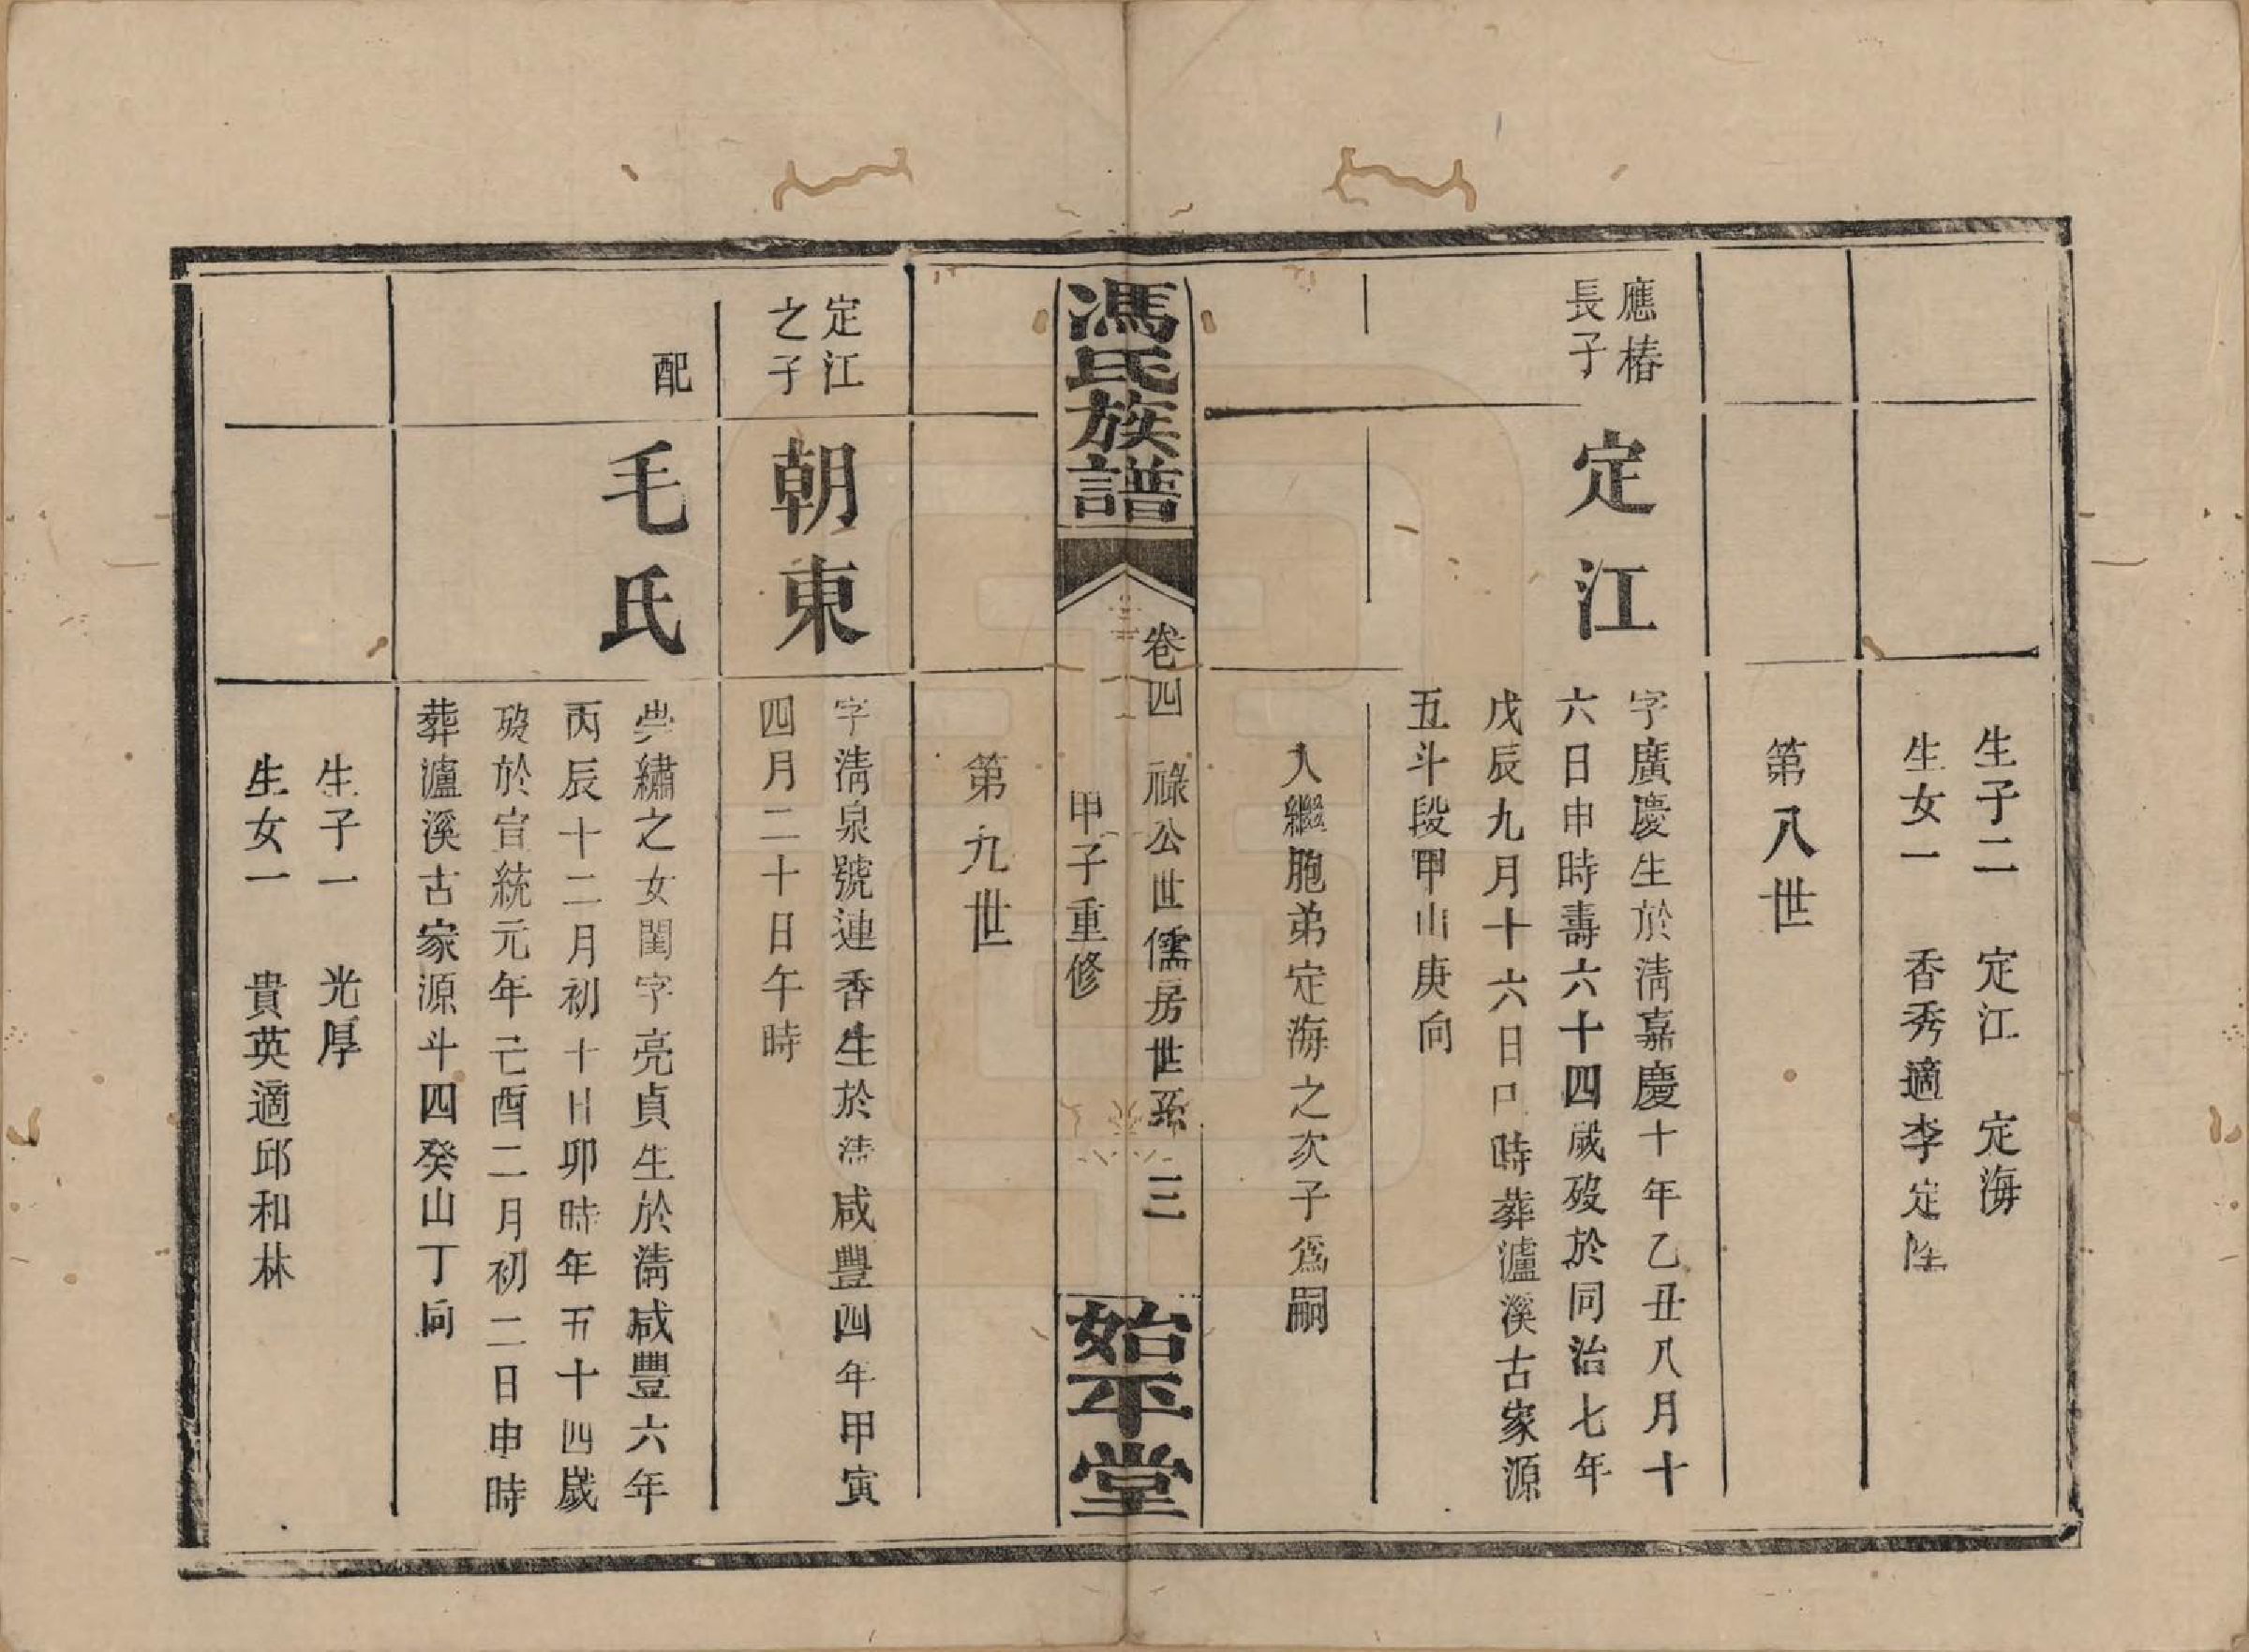 生子二 定江 定海
生女一 香秀適李定陞
第八世
應椿
長子
定江
字廣慶生於清嘉慶十年乙丑八月十
六日申時壽六十四歲歿於同治七年
戊辰九月十六日 時葬瀘溪古家源
五斗段甲山庚向
入繼胞弟定海之次子爲嗣
馮氏族譜
卷四 祿公世儒房世系 三
甲子重修
始平堂
第九世
定江
之子
朝東
字清泉號連香生於清咸豐四年甲寅
四月二十日午時
配
毛氏
典繡之女閨字亮貞生於清咸豐六年
丙辰十二月初十日卯時年五十四歲
歿於宣統元年己酉二月初二日申時
葬瀘溪古家源斗四癸山丁向
生子一 光厚
生女一 貴英適邱和林